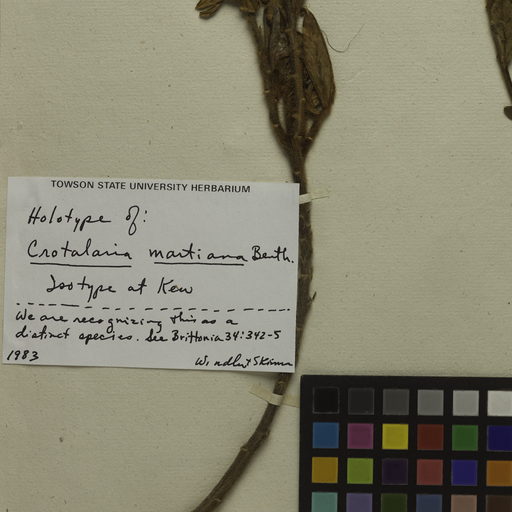 TOWSON STATE UNIVERSITY HERBARIUM
Holotype of:
Crotalaria martiana Benth.
Isotype at Kew
We are recognizing this as a
distinct species. See Brittonia 34:342-5
1983 Windler & Skinner